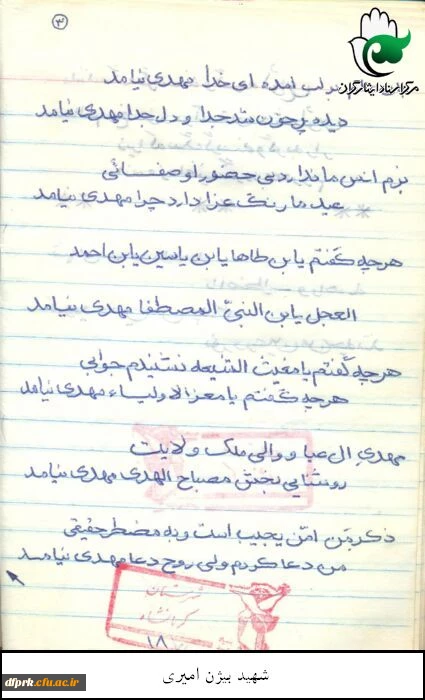 ۳
مرکز اسناد ایثارگران
بر لب آمده ای خدا مهدی نیامد
دیده پر خون شد جدا و دل جدا مهدی نیامد
بزم انس ما ندارد بی حضور او صفائی
عید ما رنگ عزا دارد چرا مهدی نیامد
هرچه گفتم یابن طاها یابن یاسین یابن احمد
العجل یابن النبیّ المصطفا مهدی نیامد
هرچه گفتم یا مغیث الشیعه نشنیدم جوابی
هرچه گفتم یا معز الاولیاء مهدی نیامد
مهدی ال عبا و والی ملک ولایت
روشنایی بخش مصباح الهدی مهدی نیامد
ذکر من امّن یجیب است و به مضطر حقیقی
من دعا کردم ولی روح دعا مهدی نیامد
شهرستان
کرمانشاه
۱۸
dfprk.cfu.ac.ir
شهید بیژن امیری